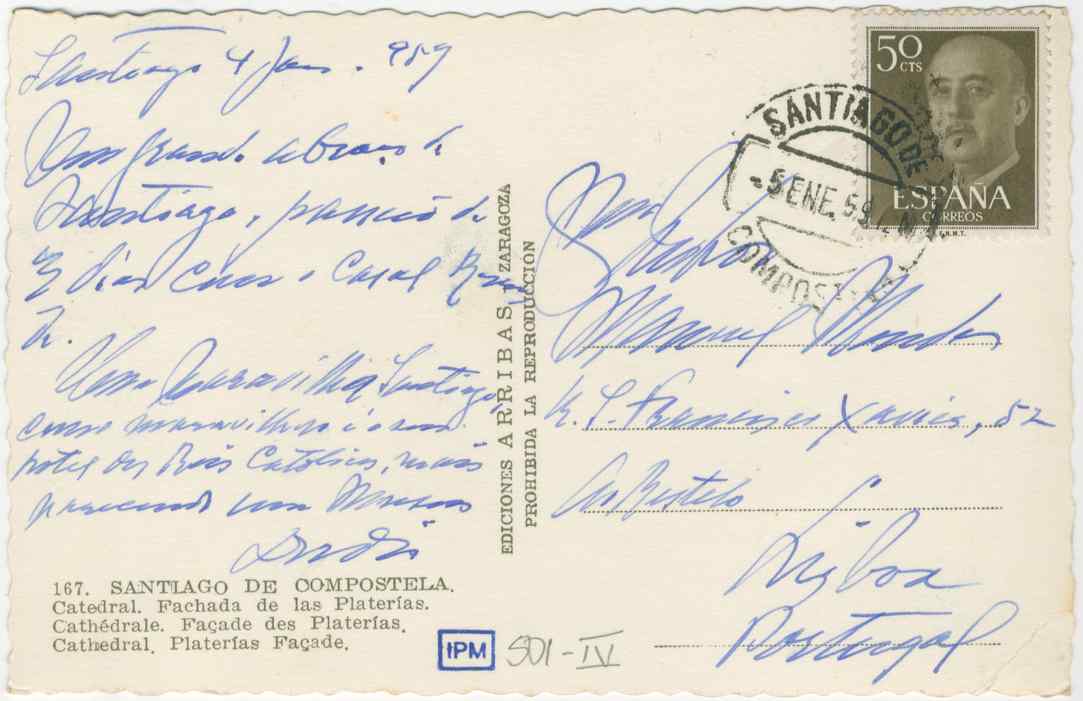 Santiago 4 Jan. 959
Um grande abraço de
Santiago,
3 dias com o Casal
Uma maravilha Santiago,
como maravilhoso é o seu
hotel dos Reis Católicos, mais
parecendo um Museu
167. SANTIAGO DE COMPOSTELA.
Catedral. Fachada de las Platerías.
Cathédrale. Façade des Platerías.
Cathedral. Platerías Façade.
IPM
SO1-IV
EDICIONES ARRIBAS - ZARAGOZA
PROHIBIDA LA REPRODUCCION
50 CTS
ESPAÑA
CORREOS
F.N.M.T.
SANTIAGO DE
-5 ENE. 59
COMPOSTELA
Manuel Mendes
R. S. Francisco Xavier, 52
Ao Restelo
Lisboa
Portugal